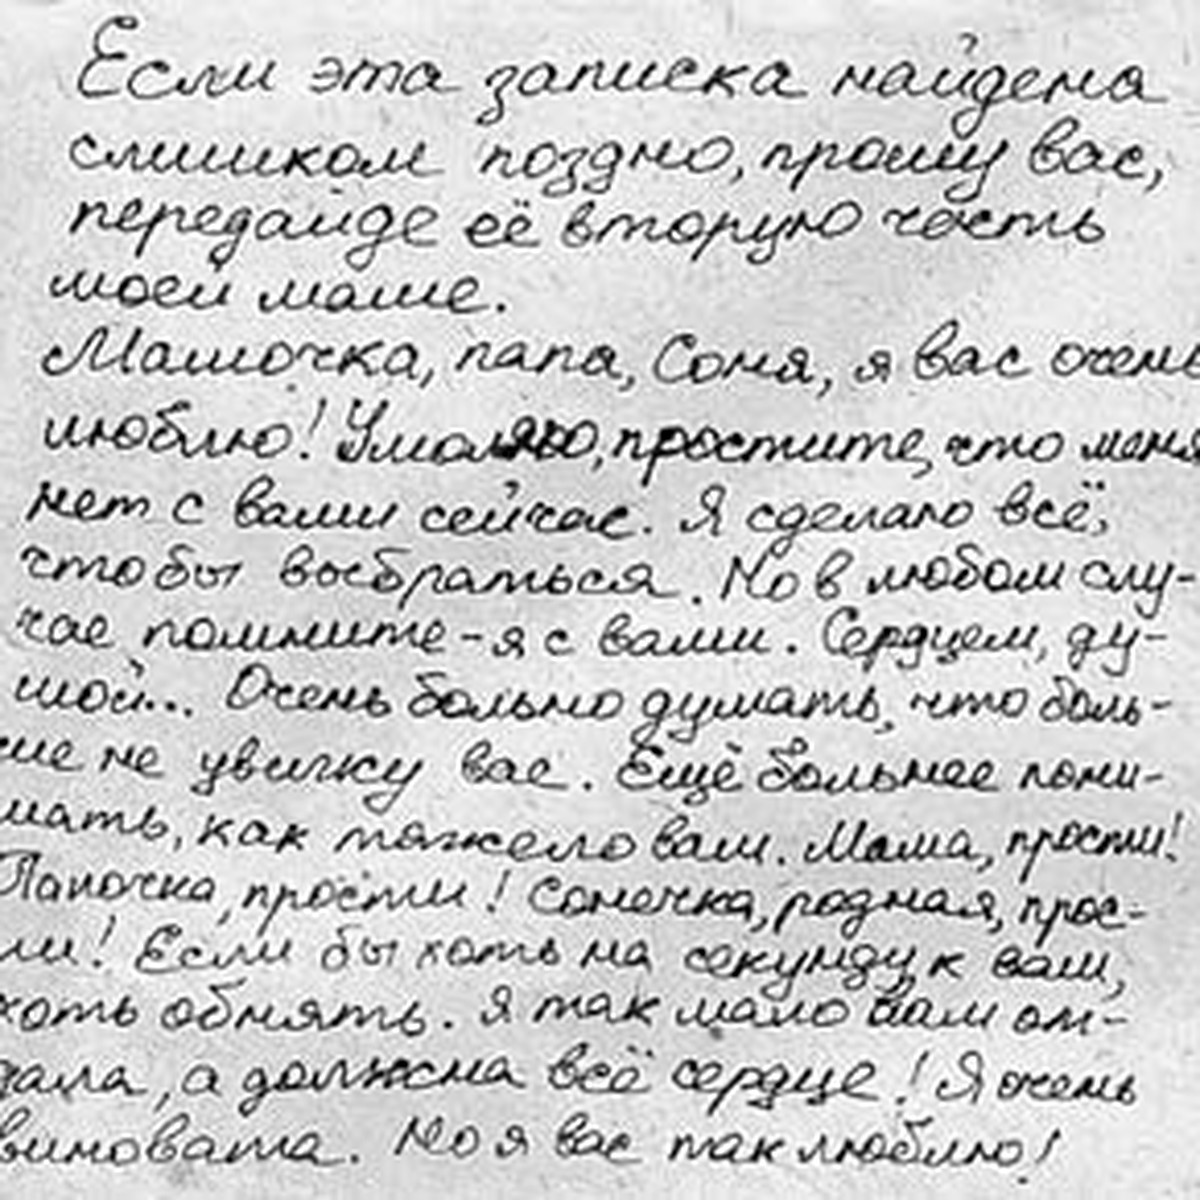 Если эта записка найдена
слишком поздно, прошу вас,
передайде её вторую часть
моей маше.
Мамочка, папа, Соня, я вас очень
люблю! Умоляю, простите, что меня
нет с вами сейчас. Я сделаю всё,
чтобы выбраться. Но в любом слу-
чае помните - я с вами. Сердцем, ду-
шой... Очень больно думать, что боль-
ше не увижу вас. Ещё больнее пони-
мать, как тяжело вам. Мама, прости!
Папочка, прости! Сонечка, родная, прос-
ти! Если бы хоть на секунду к вам,
хоть обнять. Я так мало вам от-
дала, а должна всё сердце! Я очень
виновата. Но я вас так люблю!